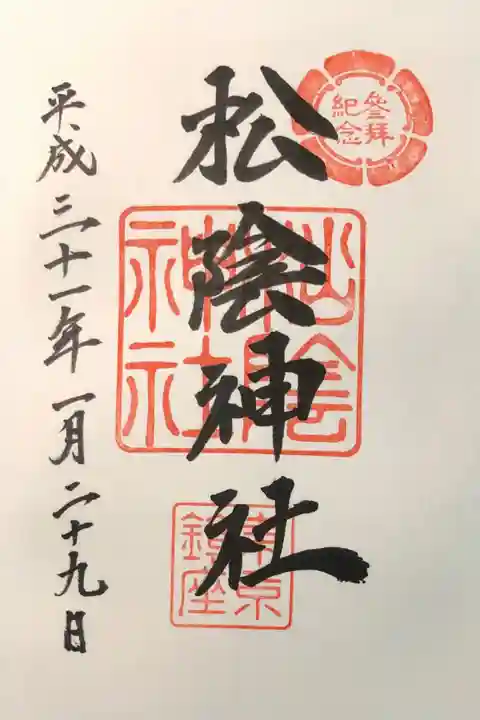 参拜
紀念
松陰神社
松陰
神社
東京
鎮座
平成三十一年一月二十九日